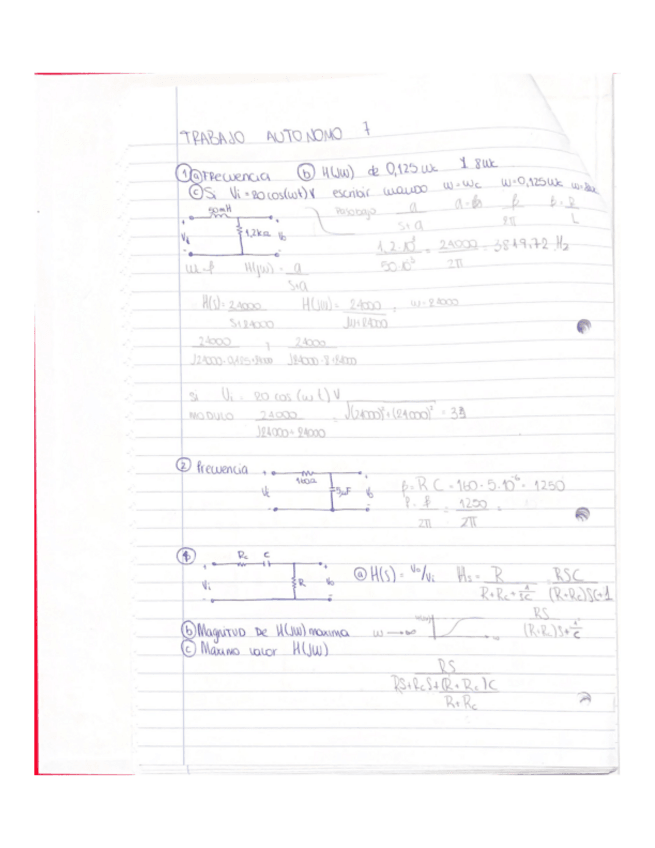 TRABAJO AUTONOMO 7
① ⓐ Frecuencia ⓑ H(jw) de 0,125 wc 1 8wc
ⓒ Si Vi = 20 cos(wt) V escribir cuando w=wc w=0,125wc w=8wc
50mH
Vi 1,2kΩ Vo
a
s+a
β = R
L
β
2π
1,2·10³
50·10⁻³
24000 = 3819,72 Hz
2π
H(jw) = a
s+a
H(s) = 24000
s+24000
H(jw) = 24000
jw+24000
, w=24000
24000 , 24000
j24000·0,125+24000 j24000·8+24000
Si Vi = 20 cos(wt) V
MODULO 24000
j24000+24000
√(24000)²+(24000)² = 33
② Frecuencia
160Ω
Vi 5μF Vo
β = R C = 160·5·10⁻⁶ = 1250
β
2π
= 1250 =
2π
④
Rc C
Vi R Vo
ⓐ H(s) = Vo/Vi Hs = R
R+Rc+1/sC
RSC
(R+Rc)SC+1
RS
(R+Rc)S+1/C
ⓑ Magnitud de H(jw) maxima w → ∞
ⓒ Maximo valor H(jw)
RS
RS+RcS+(R+Rc)C
R+Rc